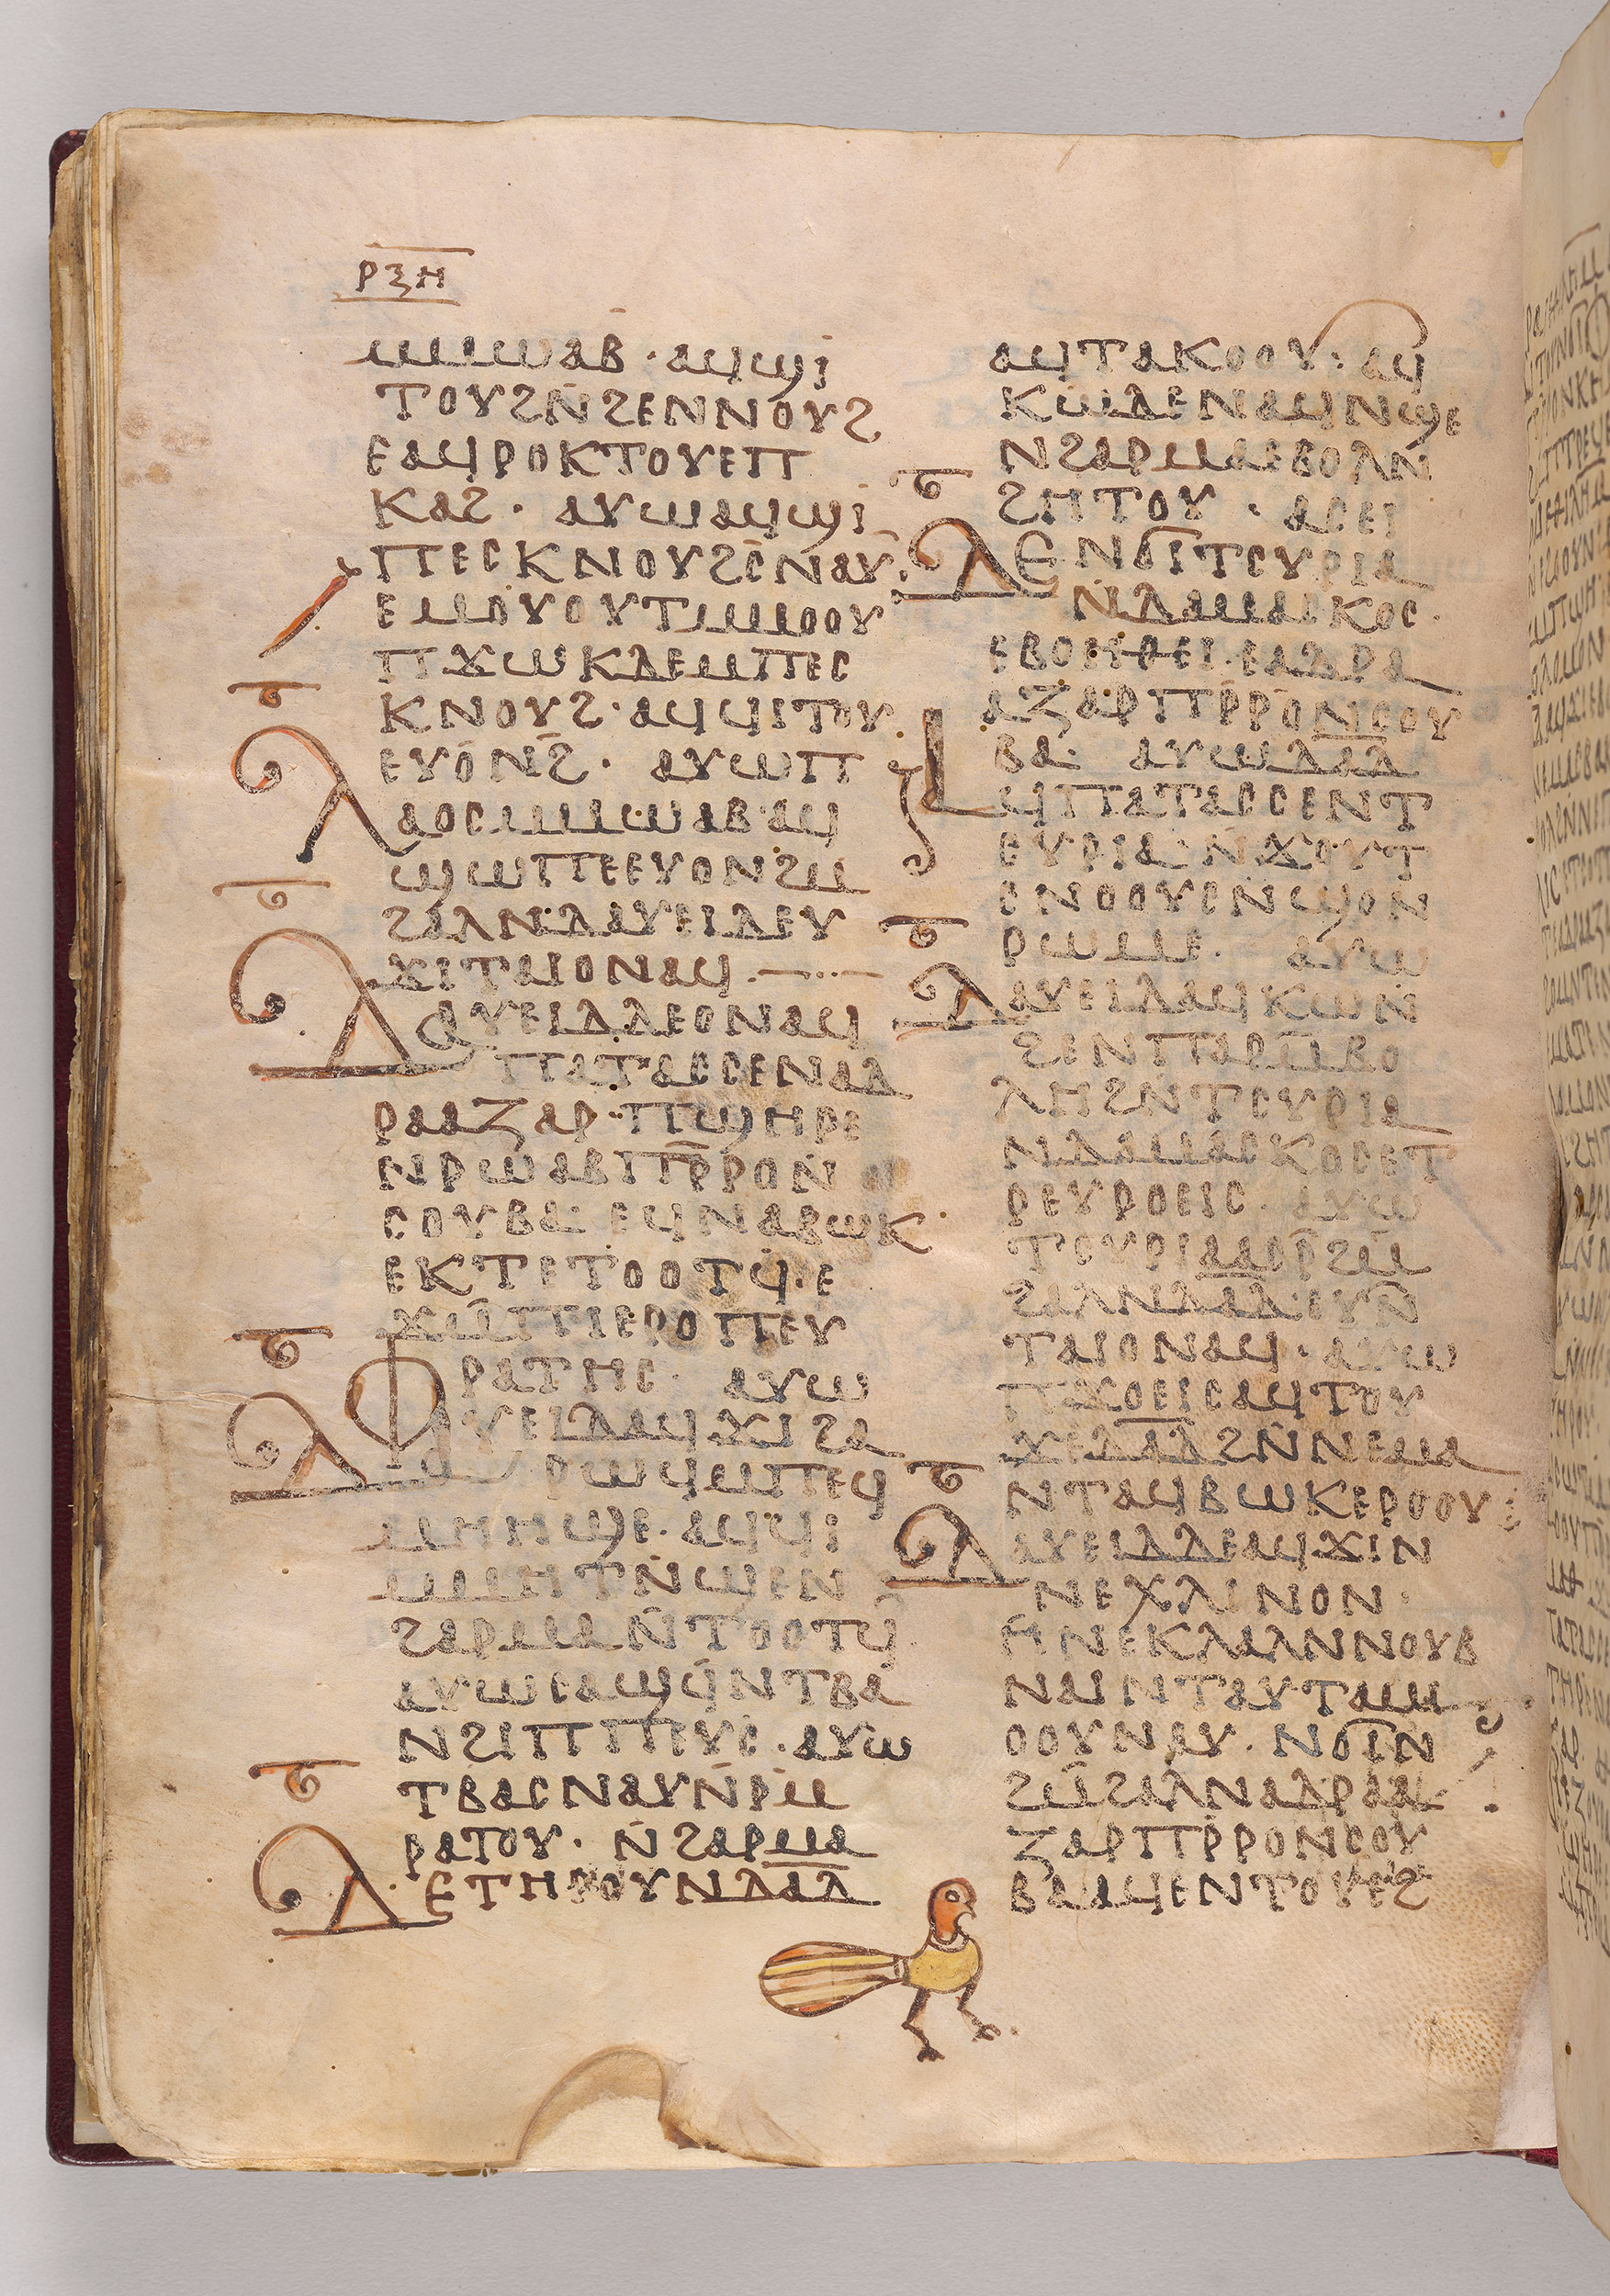 ⲣⲝⲏ
ⲙⲙⲱⲁⲃ · ⲁϥϣⲓ
ⲧⲟⲩϩⲛ̄ϩⲉⲛⲛⲟⲩϩ
ⲉⲁϥⲣⲟⲕⲧⲟⲩⲉⲡ
ⲕⲁϩ · ⲁⲩⲱⲁϥϣⲓ
ⲡⲉⲥⲕⲛⲟⲩϩⲥⲛⲁⲩ
ⲉⲙⲟⲩⲟⲩⲧⲙⲙⲟⲟⲩ
ⲡϫⲱⲕⲇⲉⲙⲡⲉⲥ
ⲕⲛⲟⲩϩ · ⲁϥϥⲓⲧⲟⲩ
ⲉⲩⲟⲛϩ̄ · ⲁⲩⲱⲡ
ⲗⲁⲟⲥⲙⲙⲱⲁⲃ ⲁϥ
ϣⲱⲡⲉⲉⲩⲟⲛϩⲙ
ϩⲁⲗⲛⲇⲁⲩⲉⲓⲇⲉⲩ
ϫⲓⲧⲁⲓⲟⲛⲁϥ
ⲇⲁⲩⲉⲓⲇⲇⲉⲟⲛⲁϥ
ⲡⲁⲧⲁⲥⲥⲉⲛⲁⲇ
ⲣⲁⲁⲍⲁⲣ · ⲡϣⲏⲣⲉ
ⲛⲣⲱⲁⲃⲡⲣ̄ⲣⲟⲛ
ⲥⲟⲩⲃⲁ ⲉϥⲛⲁⲃⲱⲕ
ⲉⲕⲧⲉⲧⲟⲟⲧϥ · ⲉ
ϫⲙ̄ⲡⲓⲉⲣⲟⲡⲉⲩ
ⲫⲣⲁⲧⲏⲥ · ⲁⲩⲱ
ⲇⲁⲩⲉⲓⲇⲁϥϫⲓϩⲁ
ⲣⲱϥⲙⲡⲉϥ
ⲙⲏⲏϣⲉ · ⲁϥϥⲓ
ⲙⲙⲏⲧⲛ̄ϣⲉⲛ
ϩⲁⲣⲙⲁⲛ̄ⲧⲟⲟⲧϥ
ⲁⲩⲱⲥⲁϣϥ̄ⲛⲧⲃⲁ
ⲛϩⲓⲡⲡⲉⲩⲥ · ⲁⲩⲱ
ⲧⲃⲁⲥⲛⲁⲩⲛ̄ⲣⲙ
ⲣⲁⲧⲟⲩ · ⲛ̄ϩⲁⲣⲙⲁ
ⲇⲉⲧⲏⲣⲟⲩⲛⲇⲁ̄ⲇ
ⲁϥⲧⲁⲕⲟⲟⲩ : ⲁϥ
ⲕⲱⲇⲉⲛⲁϥⲛϣⲉ
ⲛϩⲁⲣⲙⲁⲉⲃⲟⲗⲛ̄
ϩⲏⲧⲟⲩ · ⲁⲥⲉⲓ
ⲇⲉⲛϭⲓⲧⲥⲩⲣⲓⲁ
ⲛ̄ⲇⲁⲙⲁⲥⲕⲟⲥ ·
ⲉⲃⲟⲏⲑⲉⲓ · ⲉⲁⲇⲣⲁ
ⲁⲍⲁⲣⲡⲣ̄ⲣⲟⲛⲥⲟⲩ
ⲃⲁ ⲁⲩⲱⲇⲁ̄ⲇ
ⲁϥⲡⲁⲧⲁⲥⲥⲉⲛⲧ
ⲥⲩⲣⲓⲁ ⲛ̄ϫⲟⲩⲧ
ⲥⲛⲟⲟⲩⲥⲛ̄ϣⲟⲛ
ⲣⲱⲙⲉ · ⲁⲩⲱ
ⲇⲁⲩⲉⲓⲇⲁϥⲕⲱⲛ̄
ϩⲉⲛⲡⲁⲣⲙ̄ⲃⲟ
ⲗⲏϩⲛ̄ⲧⲥⲩⲣⲓⲁ
ⲛⲇⲁⲙⲁⲥⲕⲟⲥⲉⲧ
ⲣⲉⲩⲣⲟⲉⲓⲥ · ⲁⲩⲱ
ⲧⲥⲩⲣⲓⲁⲁⲥⲣ̄ϩⲙ̄
ϩⲁⲗⲛⲇⲁ̄ⲇ ⲉⲩⲛ̄
ⲧⲁⲓⲟⲛⲁϥ · ⲁⲩⲱ
ⲡϫⲟⲉⲓⲥⲁϥⲧⲟⲩ
ϫⲉⲇⲁ̄ⲇϩⲛ̄ⲛⲉⲙⲁ
ⲛⲧⲁϥⲃⲱⲕⲉⲣⲟⲟⲩ
ⲇⲁⲩⲉⲓⲇⲇⲉⲁϥϫⲓⲛ
ⲛⲉⲭⲗⲓⲛⲟⲛ ·
ⲏⲛⲉⲕⲗⲁⲗⲛⲛⲟⲩⲃ
ⲛⲁⲓⲛⲧⲁⲩⲧⲁⲙⲓ
ⲟⲟⲩⲛⲁⲩ · ⲛϭⲓⲛ
ϩⲙ̄ϩⲁⲗⲛⲁⲇⲣⲁⲁ
ⲍⲁⲣⲡⲣ̄ⲣⲟⲛⲥⲟⲩ
ⲃⲁⲁϥⲉⲛⲧⲟⲩⲉϩ